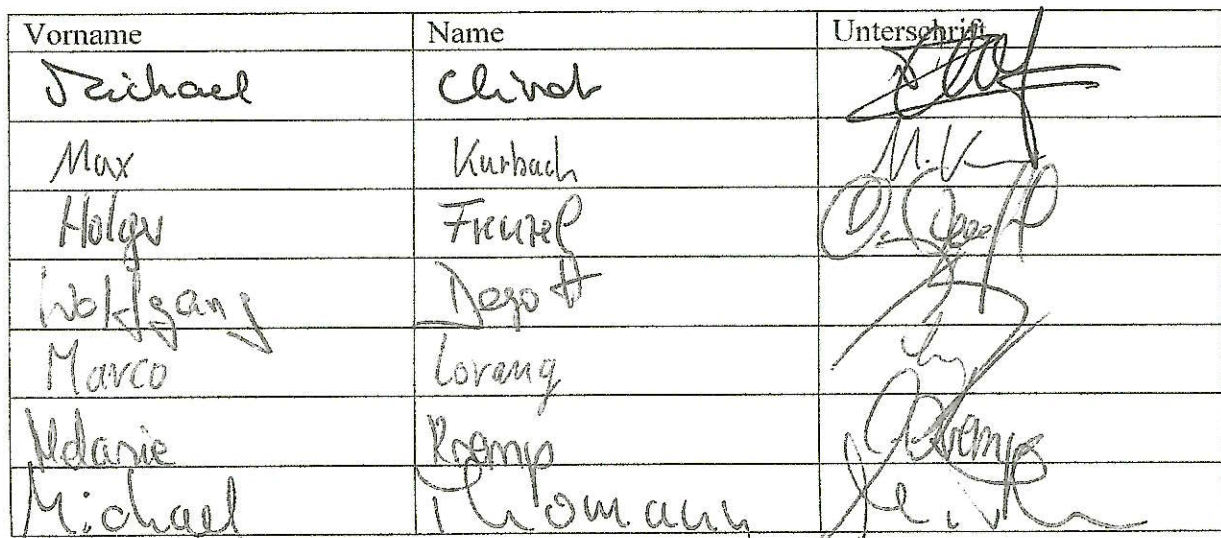 Vorname Name Unterschrift
Michael
Max Kurbach M. K
Holger Frenzel
Wolfgang Degott
Marco Lorang
Melanie Kremp Kremp
Michael Thomann